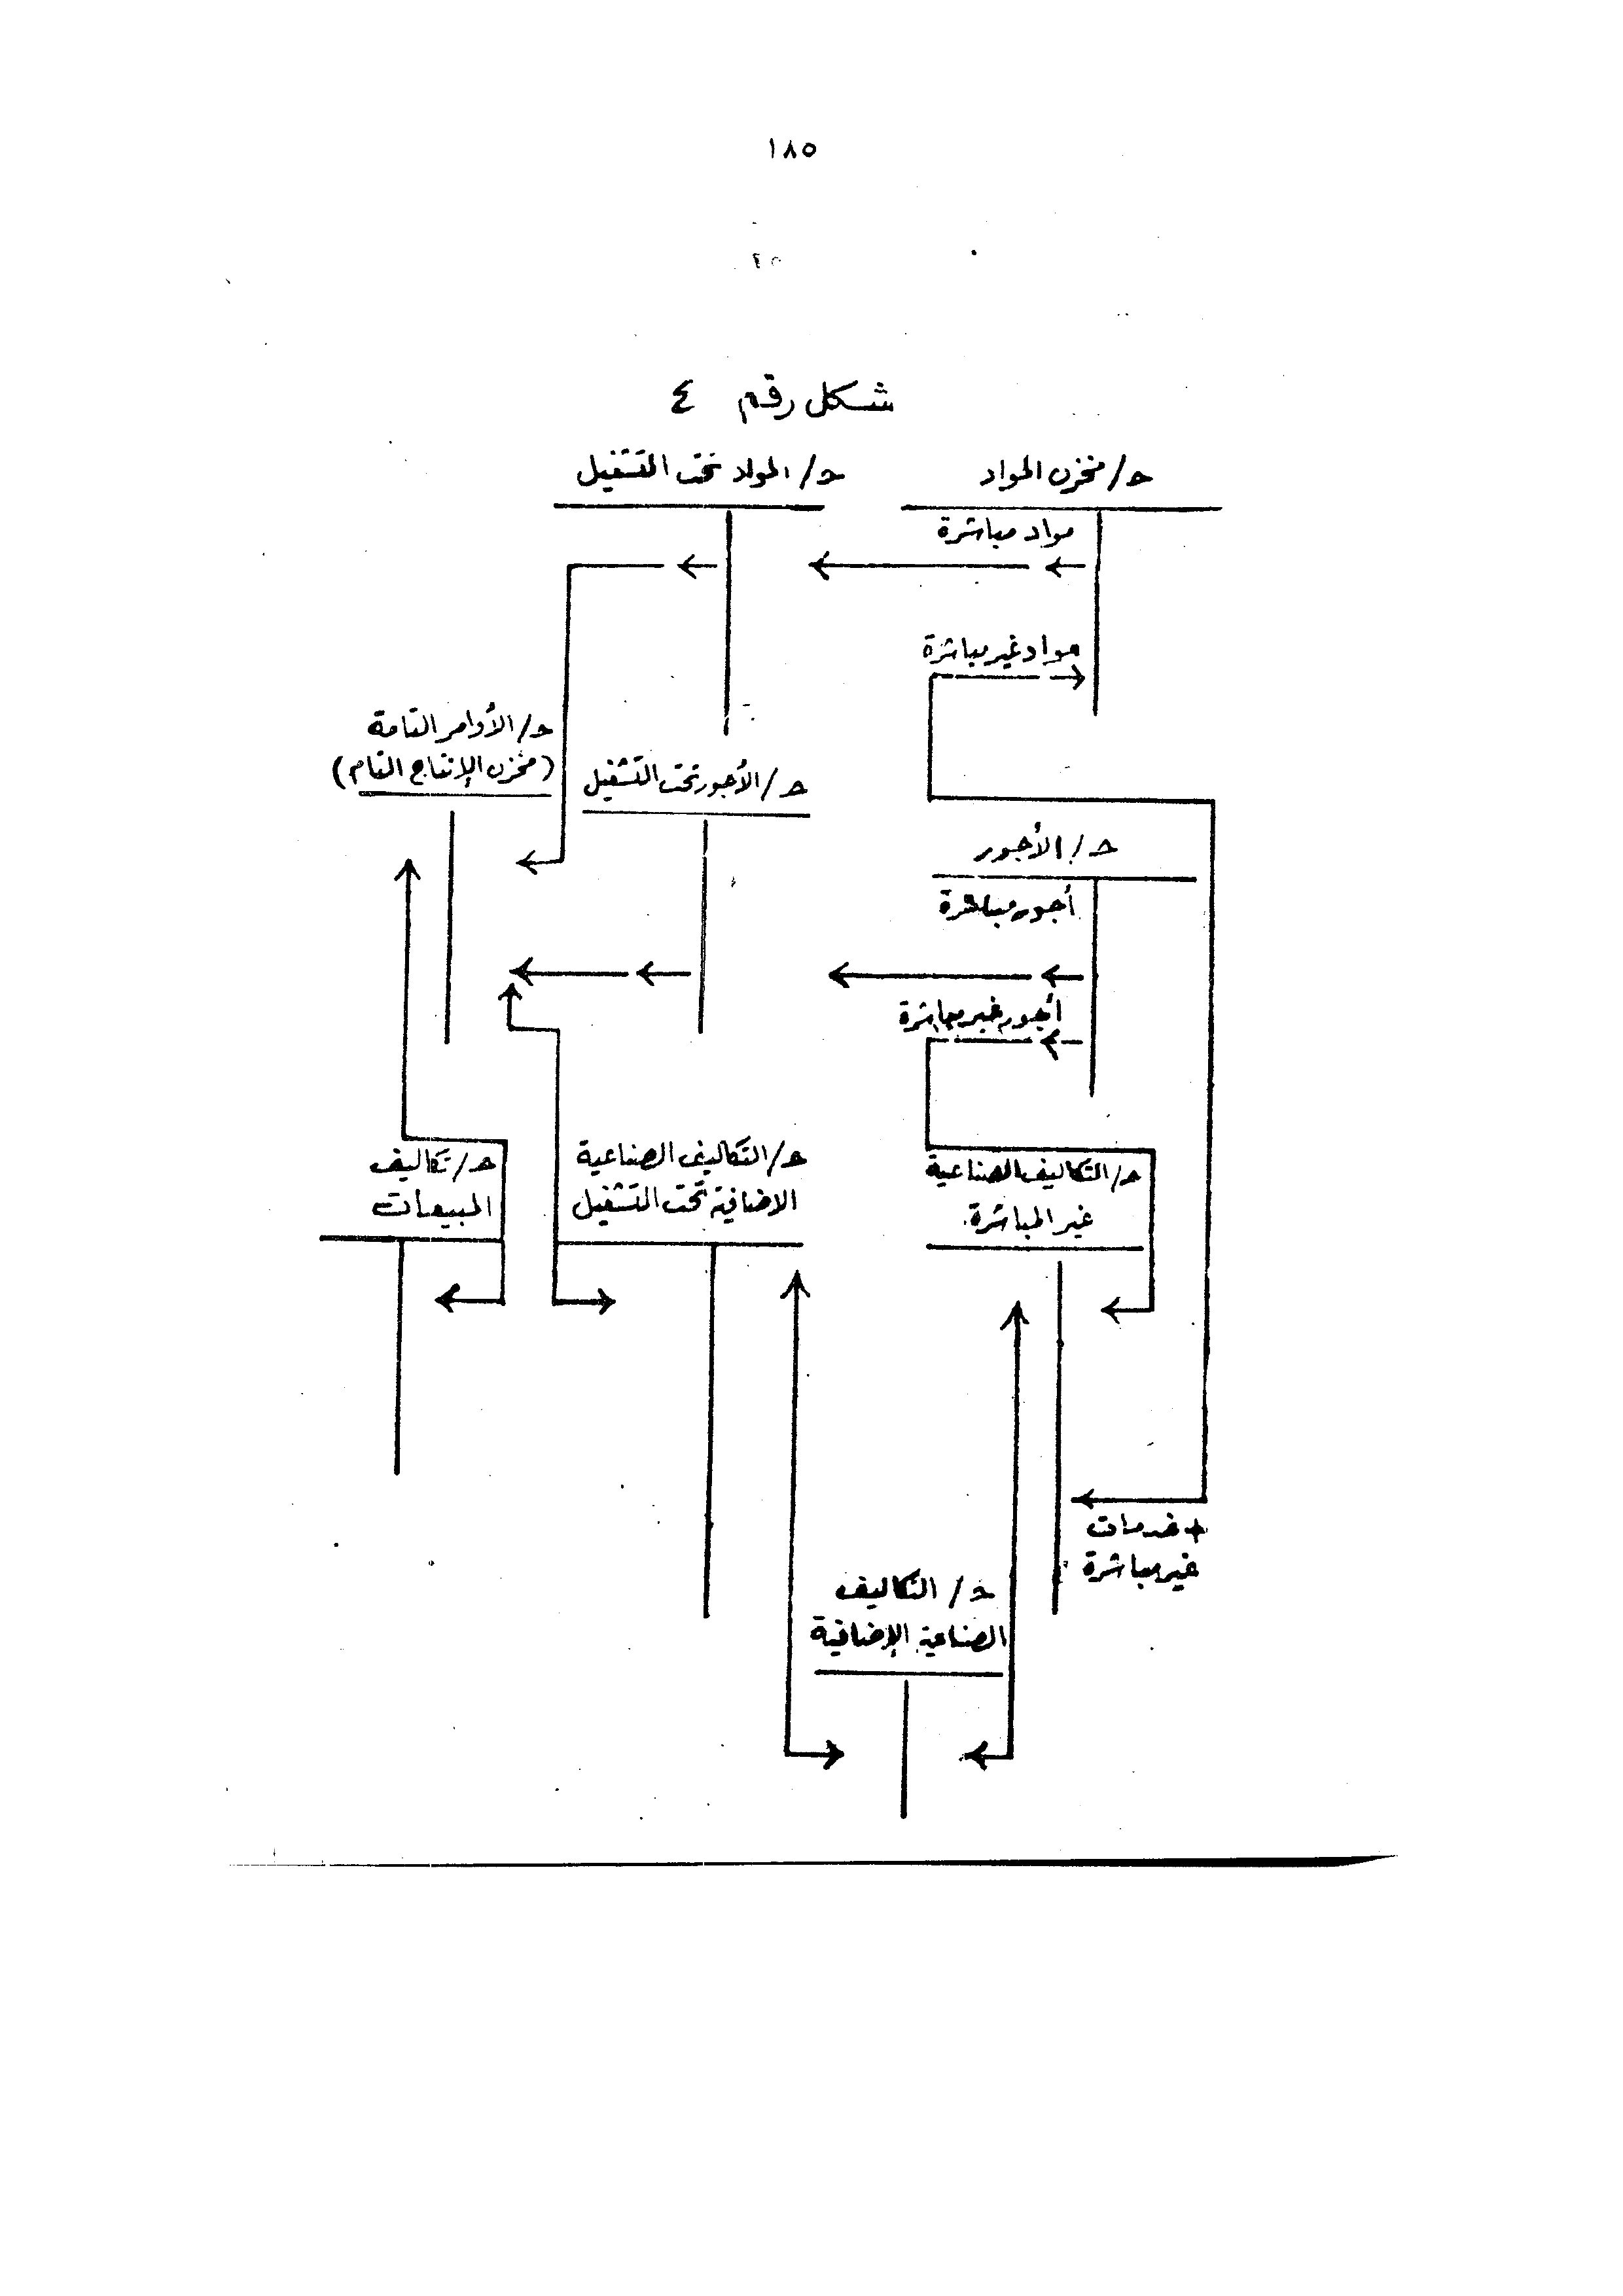 ١٨٥
شكل رقم ٤
حـ/ مخزن المواد
حـ/ المواد تحت التشغيل
مواد مباشرة
مواد غير مباشرة
حـ/ الأوامر التامة
(مخزن الإنتاج التام)
حـ/ الأجور تحت التشغيل
حـ/ الأجور
أجور مباشرة
أجور غير مباشرة
حـ/ التكاليف الصناعية
غير المباشرة
حـ/ التكاليف الصناعية
الاضافية تحت التشغيل
حـ/ تكاليف
المبيعات
+ خدمات
غير مباشرة
حـ/ التكاليف
الصناعية الإضافية